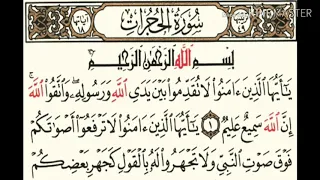 KINEMASTER
سُورَةُ الْحُجُرَاتِ
بِسْمِ اللَّهِ الرَّحْمَٰنِ الرَّحِيمِ
يَٰٓأَيُّهَا الَّذِينَ ءَامَنُوا لَا تُقَدِّمُوا بَيْنَ يَدَيِ اللَّهِ وَرَسُولِهِۦ ۖ وَاتَّقُوا اللَّهَ ۚ
إِنَّ اللَّهَ سَمِيعٌ عَلِيمٌ ١ يَٰٓأَيُّهَا الَّذِينَ ءَامَنُوا لَا تَرْفَعُوٓا أَصْوَٰتَكُمْ
فَوْقَ صَوْتِ النَّبِيِّ وَلَا تَجْهَرُوا لَهُۥ بِالْقَوْلِ كَجَهْرِ بَعْضِكُمْ